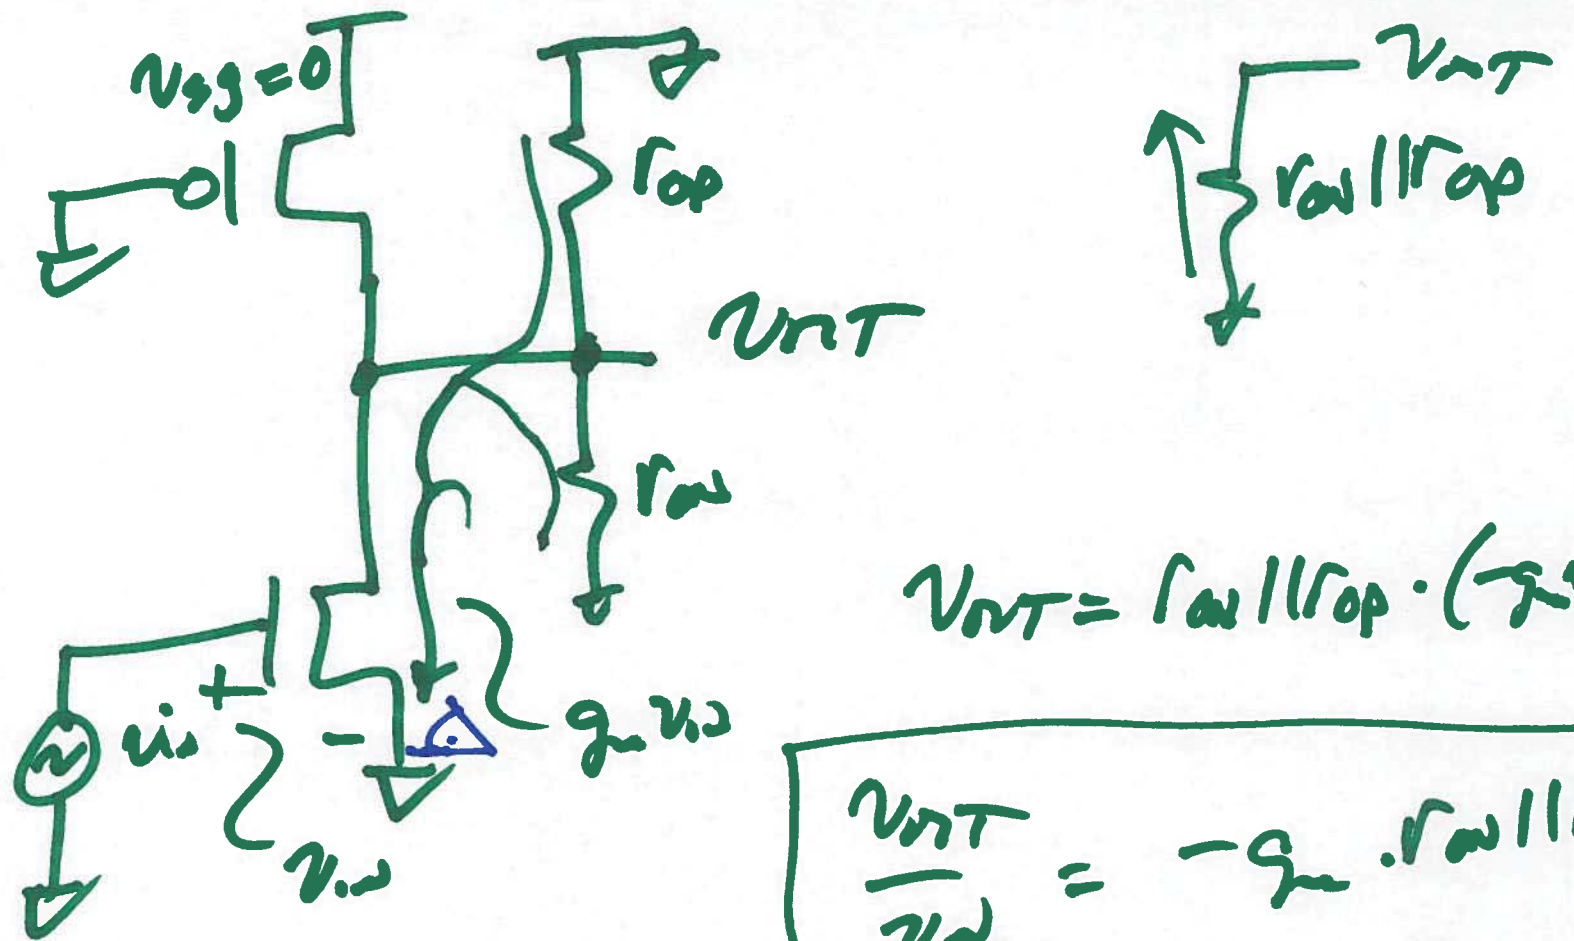 vsg=0
rop
vout
ron
+
vin
-
gm vin
vin
vout
ron||rop
vout = ron||rop · (-gm
vout
— = -gm · ron||
vin